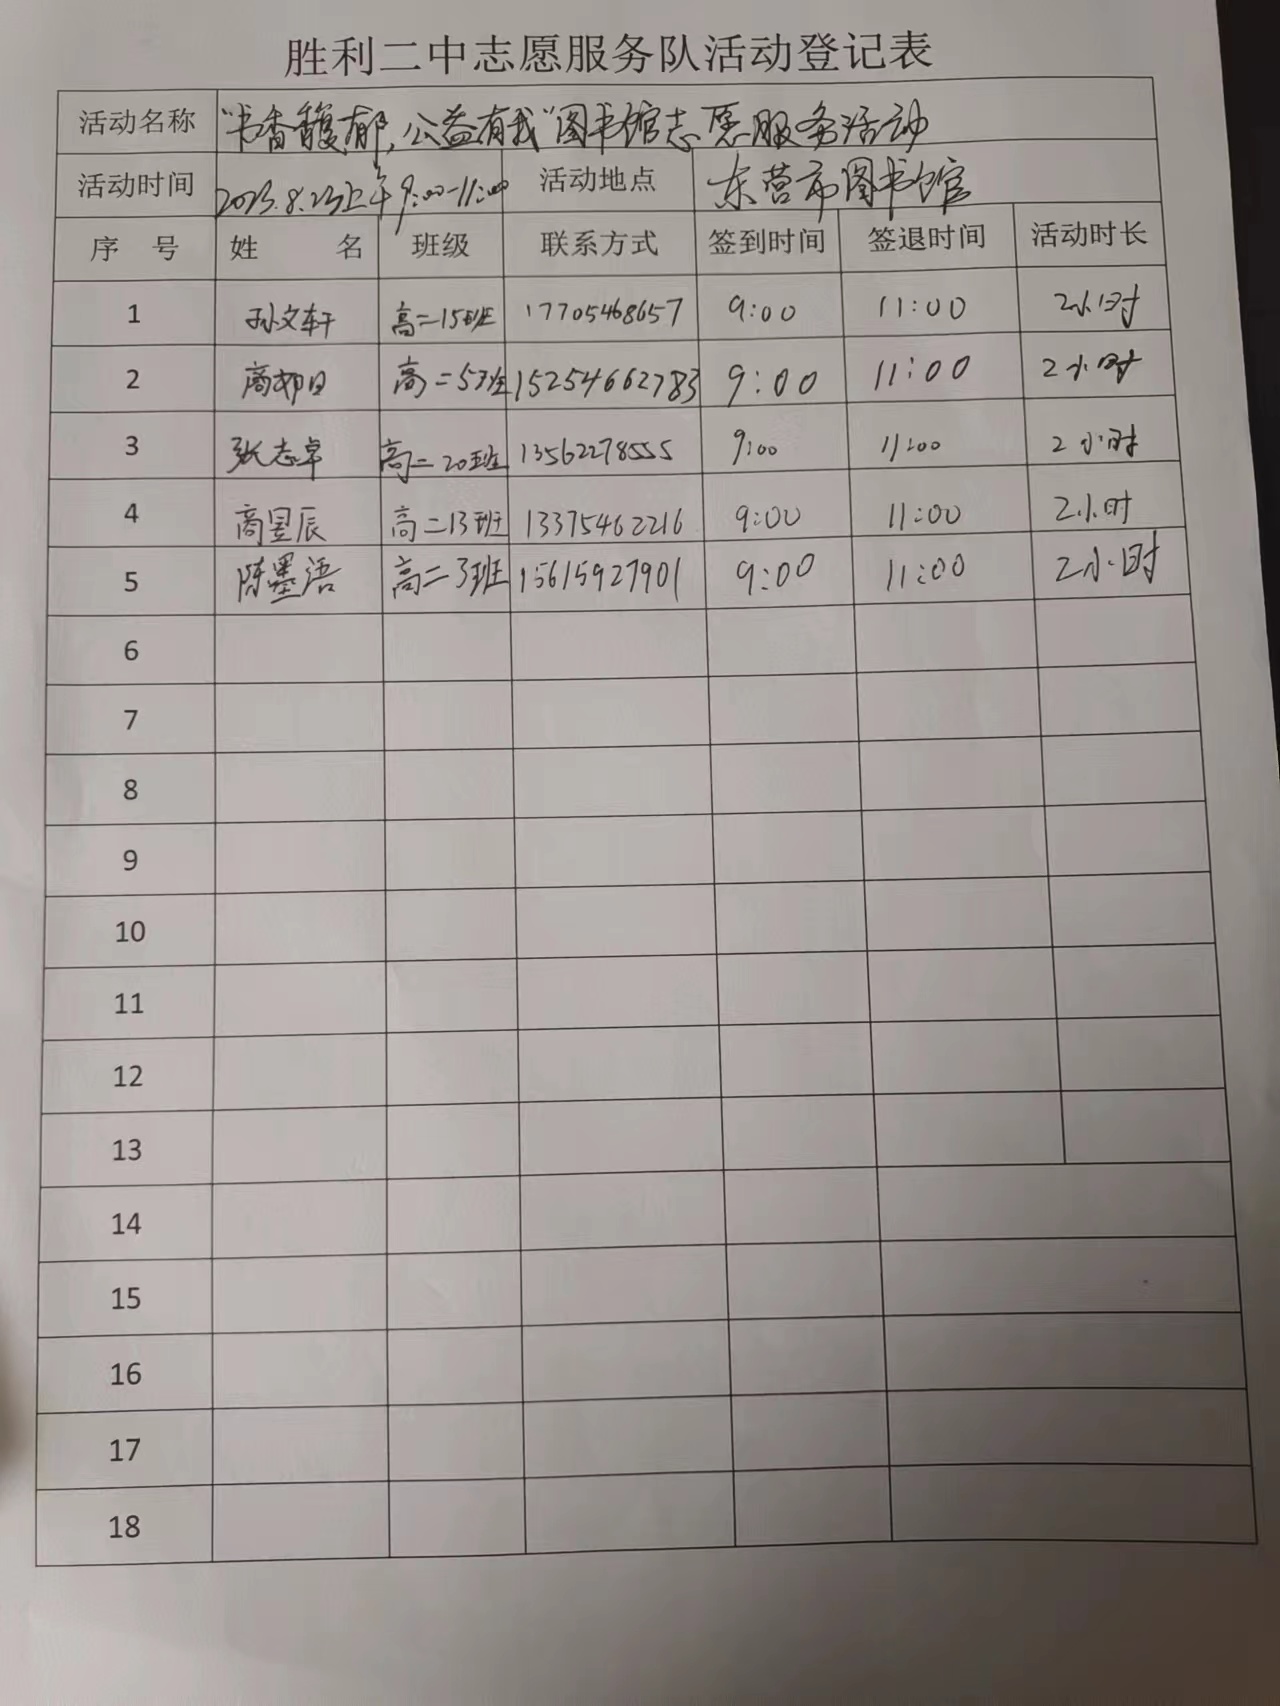 胜利二中志愿服务队活动登记表
活动名称 "书香馥郁,公益有我"图书馆志愿服务活动
活动时间 2023.8.23上午9:00-11:00 活动地点 东营市图书馆
序 号 姓 名 班级 联系方式 签到时间 签退时间 活动时长
1 孙文轩 高二15班 17705468657 9:00 11:00 2小时
2 高 日 高二5班 15254662783 9:00 11:00 2小时
3 张志卓 高二20班 13562278555 9:00 11:00 2小时
4 商昱辰 高二13班 13375462216 9:00 11:00 2小时
5 陈墨语 高二3班 15615927901 9:00 11:00 2小时
6
7
8
9
10
11
12
13
14
15
16
17
18